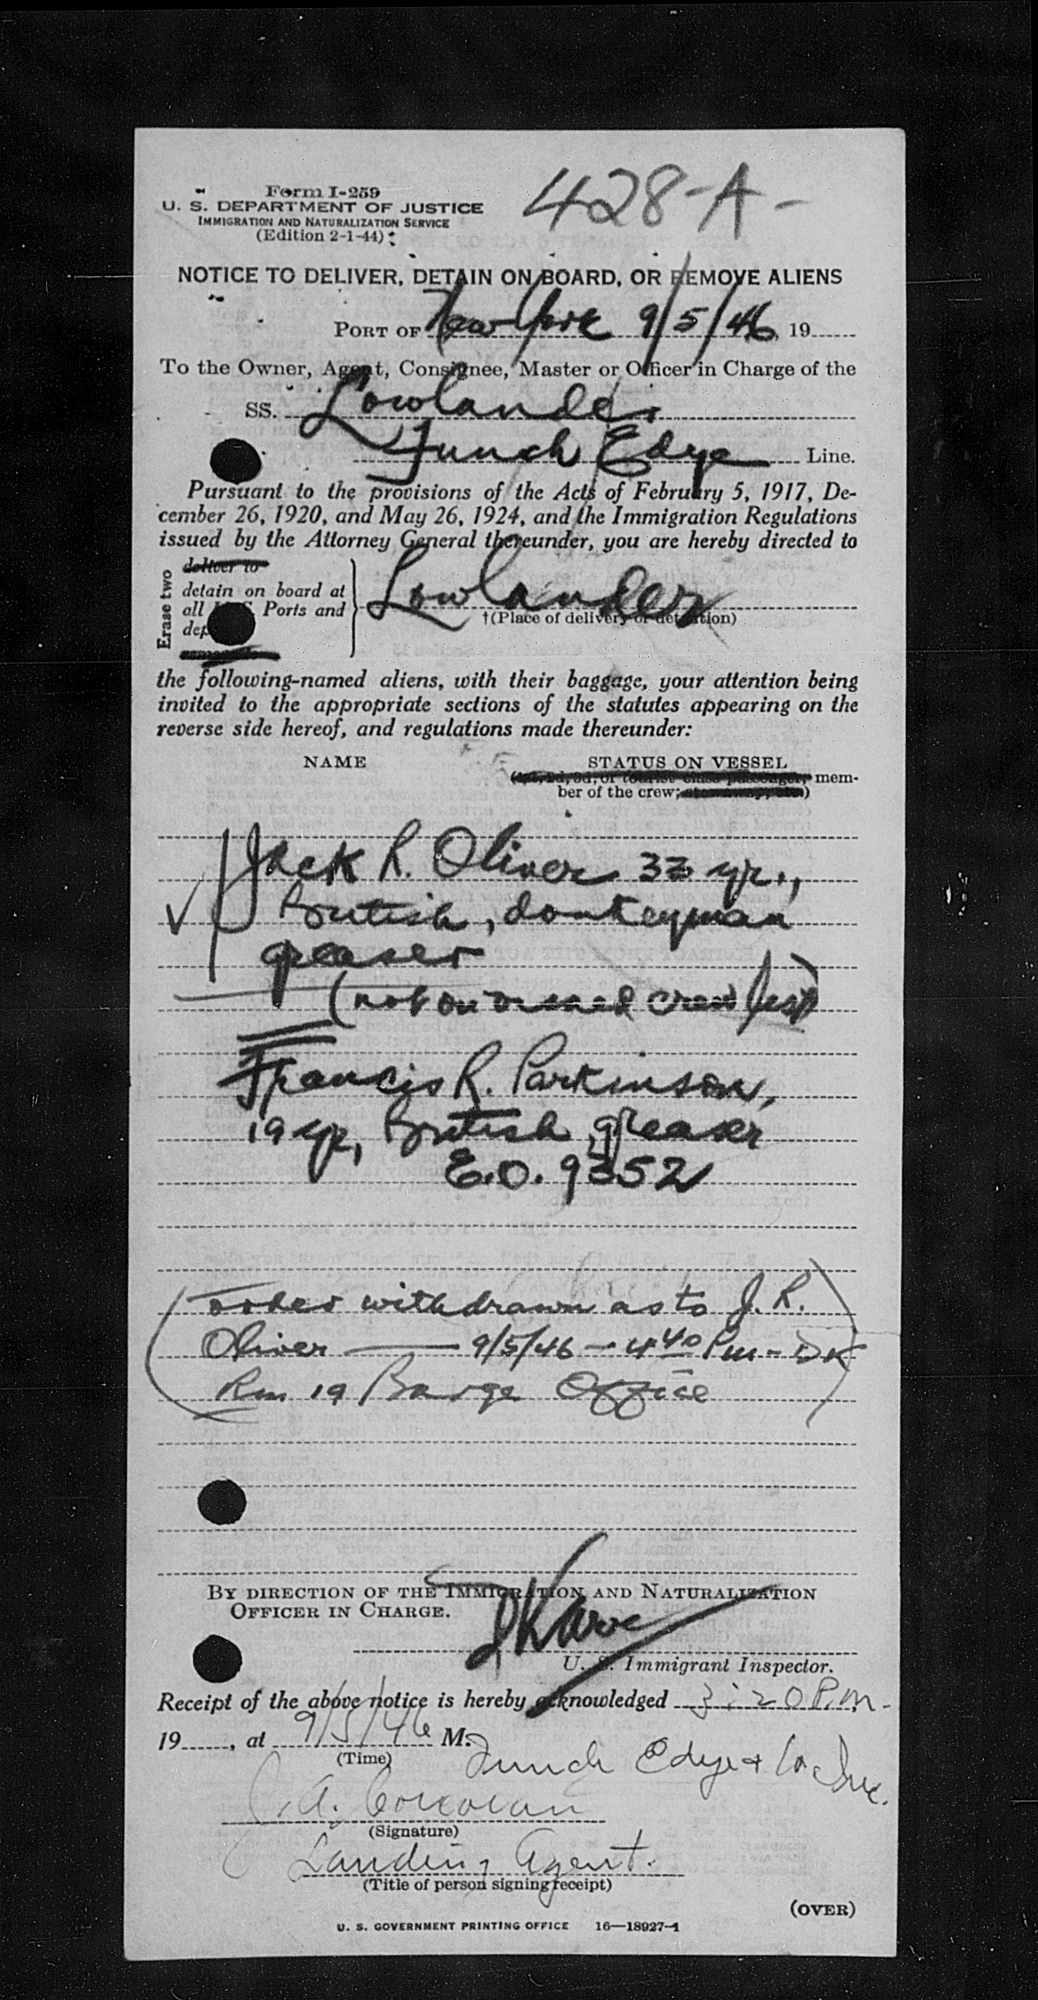 428-A-
Form I-259
U. S. DEPARTMENT OF JUSTICE
IMMIGRATION AND NATURALIZATION SERVICE
(Edition 2-1-44)
NOTICE TO DELIVER, DETAIN ON BOARD, OR REMOVE ALIENS
PORT OF New York 9/5/46, 19
To the Owner, Agent, Consignee, Master or Officer in Charge of the
SS. Lowlander
Funch Edye Line.
Pursuant to the provisions of the Acts of February 5, 1917, De-
cember 26, 1920, and May 26, 1924, and the Immigration Regulations
issued by the Attorney General thereunder, you are hereby directed to
Erase two
deliver to
detain on board at
all Ports and
Lowlander
†(Place of delivery or detention)
the following-named aliens, with their baggage, your attention being
invited to the appropriate sections of the statutes appearing on the
reverse side hereof, and regulations made thereunder:
NAME STATUS ON VESSEL
(1st, 2d, 3d, or tourist class passenger, mem-
ber of the crew; stowaway, etc.)
Jack R. Oliver 33 yr.,
British, donkeyman
greaser
(not on visaed crew list)
Francis R. Parkinson,
19 yr, British, greaser
E.O. 9352
(order withdrawn as to J. R.
Oliver — 9/5/46 - 4 40 Pm - DK
Rm 19 Barge Office)
BY DIRECTION OF THE IMMIGRATION AND NATURALIZATION
OFFICER IN CHARGE.
U. S. Immigrant Inspector.
Receipt of the above notice is hereby acknowledged 3:20 P.m.
19, at 9/5/46 M.
(Time)
Funch Edye & Co. Inc.
J. A. Corcoran
(Signature)
Landing Agent.
(Title of person signing receipt)
(OVER)
U. S. GOVERNMENT PRINTING OFFICE 16—18927-1